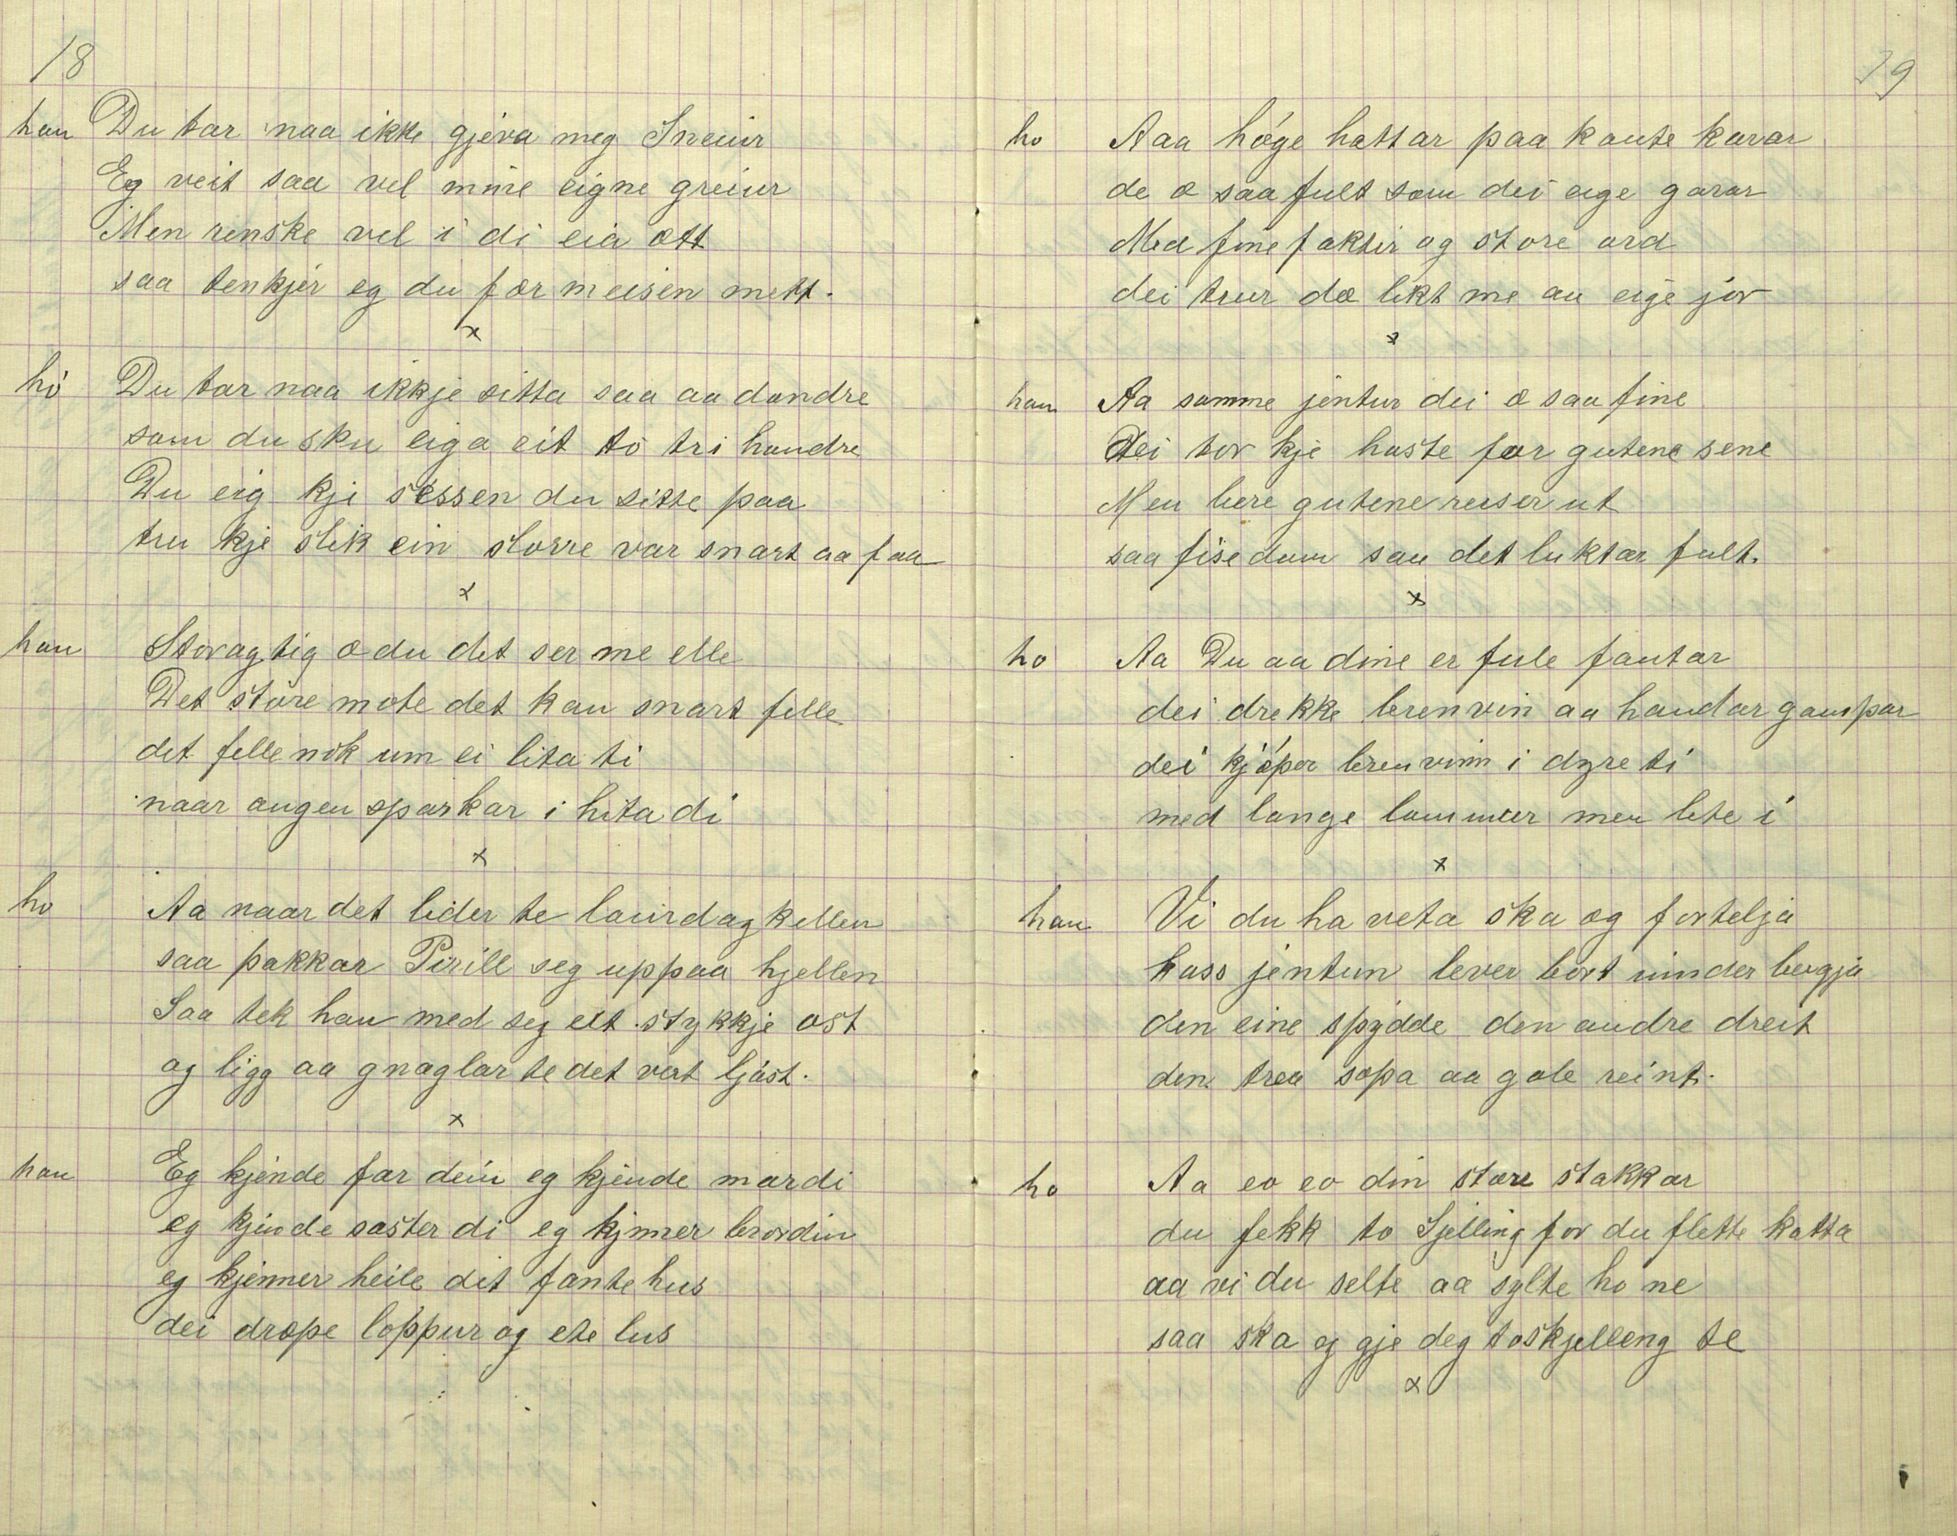 18
han Du tar naa ikke gjeva meg Sneiur
Eg veit saa vel mine eigne greiur
Men renske vel i di eia ætt
saa tenkjer eg du fær meisen mett.
x
ho Du tar naa ikkje sitta saa aa dundre
som du sku eiga eit to tri hundre
Du eig kji sessen du sitte paa
tru kje slik ein storre var snart aa faa
x
han Storagtig æ du det ser me elle
Det store mote det kan snart felle
det felle nok um ei lita ti
naar ungen sparkar i hita di
x
ho Aa naar det lider te laurdagkellen
saa pakkar Pirill seg uppaa hjellen
Saa tek han med seg eit stykkje ost
og ligg aa gnaglar te det vert ljost.
x
han Eg kjende far dein eg kjende mor di
eg kjende soster di eg kjinner bror din
eg kjenner heile dit fantehus
dei dræpe loppur og ete lus
19
ho Aaa høge hattar paa kaute karar
de æ saa fult som dei eige garar
Med fine fakter og store ord
dei trur dæ likt me au eige jor
x
han Aa somme jentur dei æ saa fine
Dei tor kje haste for gutene sene
Men bere gutene reiser ut
saa fise dom sau det luktar fult.
x
ho Aa Du aa dine er fule fantar
dei drekke brenvin aa handar gampar
dei kjøper brenvinn i dyre ti
med lange lommeer men lite i
x
han Vi du ha veta ska eg fortelja
hass jentun lever bort uinder bergja
den eine spydde den andre dreit
den treia sopa aa gole reint.
ho Aa eo eo din store stakkar
du fekk to Sjelling for du flette katta
aa vi du selte aa sylte ho ne
saa ska eg gje deg toskjelleng te
x